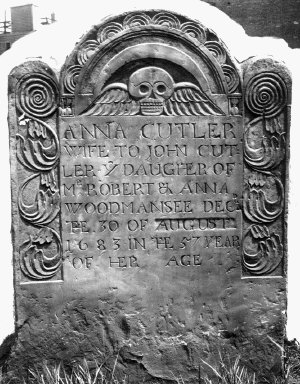 ANNA CUTLER
WIFE TO JOHN CUT-
LER. Ẏ DAUGHER OF
Mr ROBERT & ANNA
WOODMANSEE DEC
YE. 30 OF AUGUST
1683 IN YE 57 YEAR
OF HER AGE